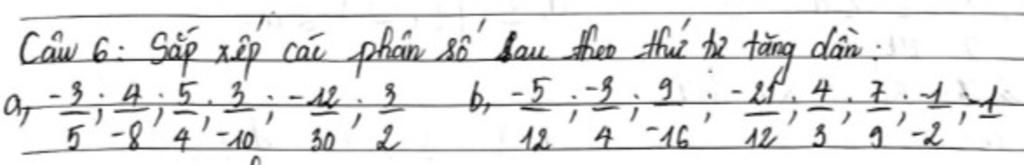 Câu 6: Sắp xếp các phân số sau theo thứ tự tăng dần:
a, -3/5; 4/-8; 5/4; 3/-10; -12/30; 3/2 b, -5/12; -3/4; 9/-16; /12; 4/3; 7/9; -1/-2; -1